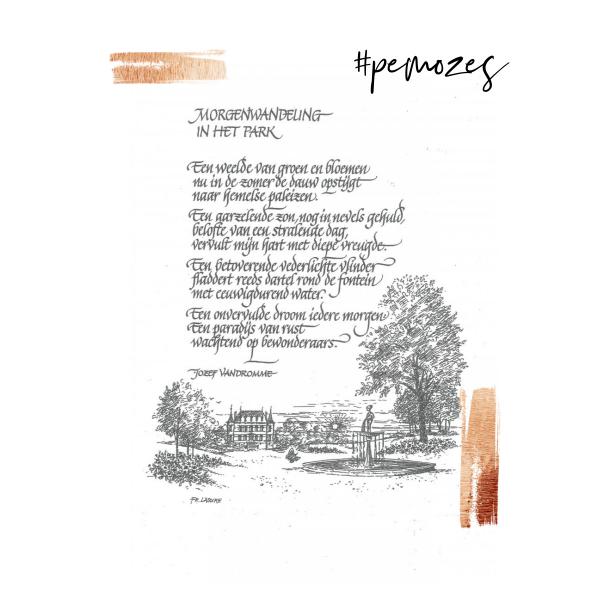 #pemozes
MORGENWANDELING
IN HET PARK
Een weelde van groen en bloemen
nu in de zomer de dauw opstijgt
naar hemelse paleizen.
Een garzelende zon, nog in nevels gehuld,
belofte van een stralende dag,
vervult mijn hart met diepe vreugde.
Een betoverende vederlichte vlinder
fladdert reeds dartel rond de fontein
met eeuwigdurend water.
Een onvervulde droom iedere morgen
Een paradijs van rust
wachtend op bewonderaars.
JOZEF VANDROMME